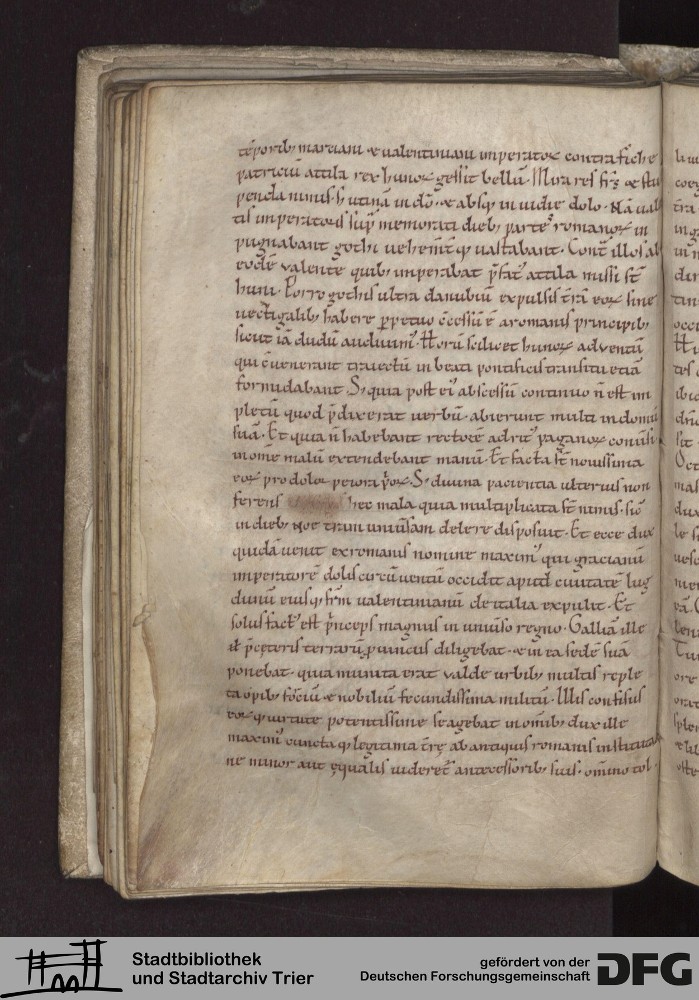 tēporib; marciani & ualentiniani imperatoꝝ contra fiche
patriciū attila rex hunoꝝ gessit bellū. Mira res frs̄ & stu
penda nimis. s; utinā in dō. & absq; inuidie dolo. Nā ual
tis imperatoris sup̄ memorati dieb; partē romanoꝝ in
pugnabant gothi uehemt̄ q; uastabant. Cont̄ illos ab
eodē valente quib; imperabat p̄fat' attila missi st̄
huni. Porro gothis ultra danubiū expulsis t̄rā eoꝝ sine
uectigalib; habere ꝑpetuo c̄cessū ē a romanis principib;
sicut iā dudū audiuim'. Horū scilicet hunoꝝ aduentū
qui c̄uenerant traiectū in beati pontificis transitu etiā
formidabant. S; quia post ei' abscessū continuo n̄ est im
pletū quod p̄dixerat uerbū. abierunt multi in domū
suā. Et quia n̄ habebant rectorē ad ritū paganoꝝ conuersi
in om̄e malū extendebant manū. Et facta st̄ nouissima
eoꝝ pro dolor peiora p'oꝝ. S; diuina pacientia ulterius non
ferens hec mala quia multiplicata st̄ nimis. sic
in dieb; Noe t̄ram uniuersam delere disposuit. Et ecce dux
quidā uenit ex romanis nomine maxim' qui gracianū
imperatorē dolis circūuentū occidit apud ciuitatē lug
dunū eiusq; fr̄m valentinianū de italia expulit. Et
solus fact' est p̄nceps magnus in uniuerso regno. Galliā ille
p̄ ceteris terrarū prouinciis diligebat. & in ea sedē suā
ponebat. quia munita erat valde urbib; multis reple
ta opib; fortiū & nobiliū fecundissima militū. Illis confisus
eoꝝq; uirtute potentissime se agebat in omīb; dux ille
maxim' cunctaq; legitima t̄rę ab antiquis romanis instituta
ne minor aut ęqualis uideret' antecessorib; suis. omnino tol
Stadtbibliothek
und Stadtarchiv Trier
gefördert von der
Deutschen Forschungsgemeinschaft
DFG